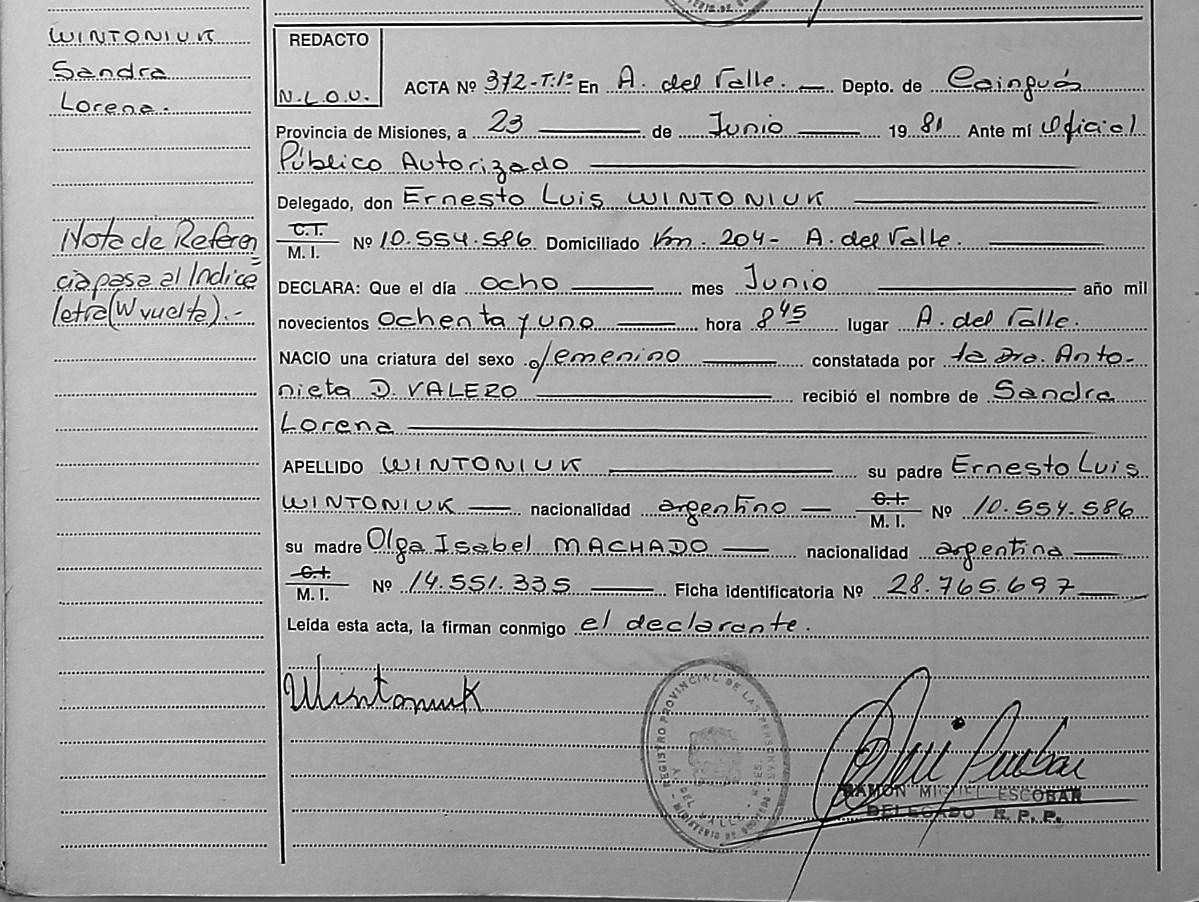 WINTONIUK
Sandra
Lorena.-
Nota de Referen
cia pasa al Indice
letra (W vuelta).-
REDACTO
N.L.O.U.
ACTA Nº 372-T:1º En A. del Valle. Depto. de Cainguás
Provincia de Misiones, a 23 de Junio 19 81 Ante mí Oficial
Público Autorizado
Delegado, don Ernesto Luis WINTONIUK
C.I. M. I. Nº 10.554.586. Domiciliado Km. 204- A. del Valle.
DECLARA: Que el día ocho mes Junio año mil
novecientos ochenta y uno hora 8 45 lugar A. del Valle.
NACIO una criatura del sexo femenino constatada por la Dra. Anto-
nieta D. VALERO recibió el nombre de Sandra
Lorena
APELLIDO WINTONIUK su padre Ernesto Luis
WINTONIUK nacionalidad argentino C.I. M. I. Nº 10.554.586
su madre Olga Isabel MACHADO nacionalidad argentina
C.I. M. I. Nº 14.551.335 Ficha identificatoria Nº 28.765.697
Leída esta acta, la firman conmigo el declarante.
Wintoniuk
REGISTRO PROVINCIAL DE LAS PERSONAS
MINISTERIO DE GOBIERNO
DEL VALLE
RAMON MIGUEL ESCOBAR
DELEGADO R. P. P.